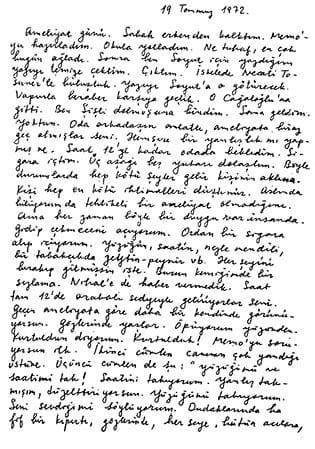 19 Temmuz 1972.
Ameliyat günü. Sabah erkenden kalktım. Memo'-
yu hazırladım. Okula yolladım. Ne tuhaf, en çok
bugün ağladı. Sonra ben Soyut için yazdığım
yazıyı temize çektim. Çıktım. İskelede Necati To-
suner'le buluştuk. Yazıyı Soyut'a o götürecek.
Vapurla beraber karşıya geçtik. O Cağaloğlu'na
gitti. Ben Şişli dolmuşuna bindim. Sana geldim.
Yoktun. Oda arkadaşın anlattı, ameliyata biraz
geç almışlar seni. Hemşire bir yanlışlık mı yap-
mış ne. Saat 12'ye kadar odada bekledim. Si-
gara içtim. Üç aşağı beş yukarı dolaştım. Böyle
durumlarda hep kötü şeyler gelir kişinin aklına.
Kişi hep en kötü ihtimalleri düşünür. Aslında
biliyorum da tehlikeli bir ameliyat olmadığını.
Ama her zaman böyle bir duygu var insanda.
Gidip çekmeceni açıyorum. Ordan bir sigara
alıp içiyorum. Yüzüğün, saatin, mendili,
bir tabakta peynir vb. Herşeyini
bırakıp gitmişsin işte. Burun kemiğimde bir
sızlama. Nihal'e de haber vermedik. Saat
tam 12'de arabalı sedyeyle getiriyorlar seni.
Geçen ameliyata göre daha bir kendinde görünü-
yorsun. Gözlerinde yaşlar. Öpüyorum yüzünden.
Kurtuldum diyorsun. Kurtulduk! Memo'yu soru-
yorsun ilk. İkinci cümlen canının çok yandığı
üstüne. Üçüncü cümlen de şu: "yüzüğümü ve
saatimi tak! Saatini takıyorum. Yanlış tak-
mışım, düzelttiriyorsun. Yüzüğünü takıyorum.
Seni sevdiğimi söylüyorum. Dudaklarında ha-
fif bir kıpırtı, gözlerinle, her şeye, bütün acılara,